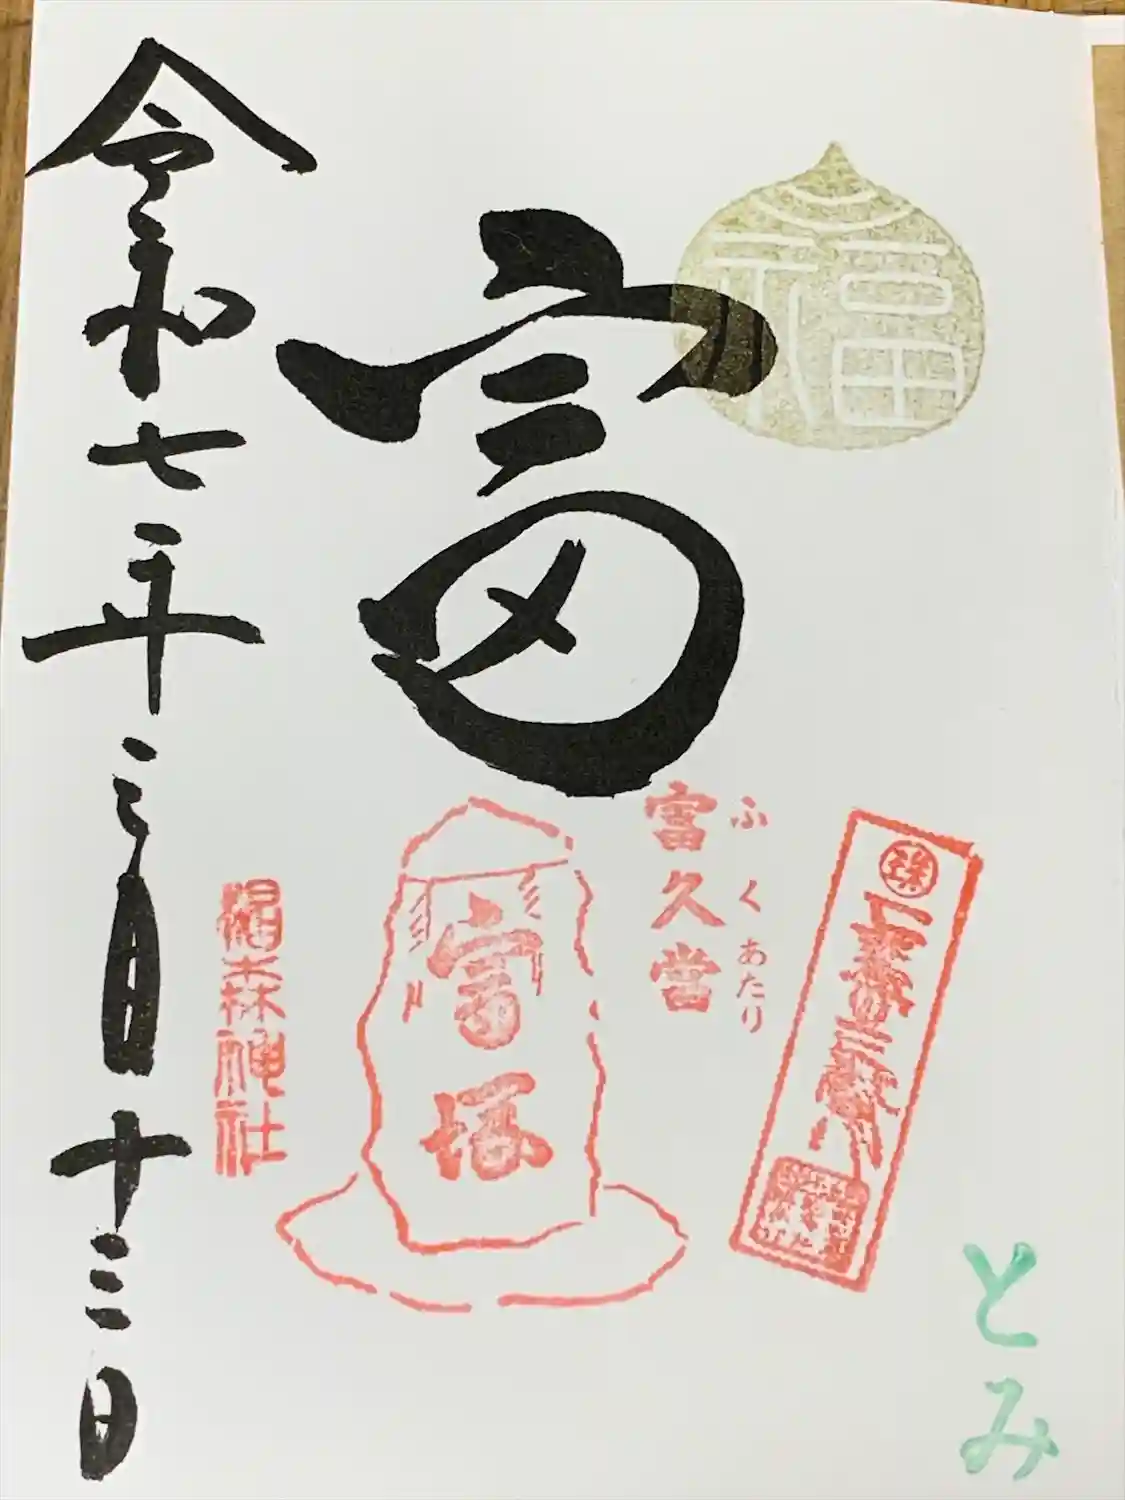 福
富
とみ
ふくあたり
富久當
富塚
椙森神社
令和七年三月十三日